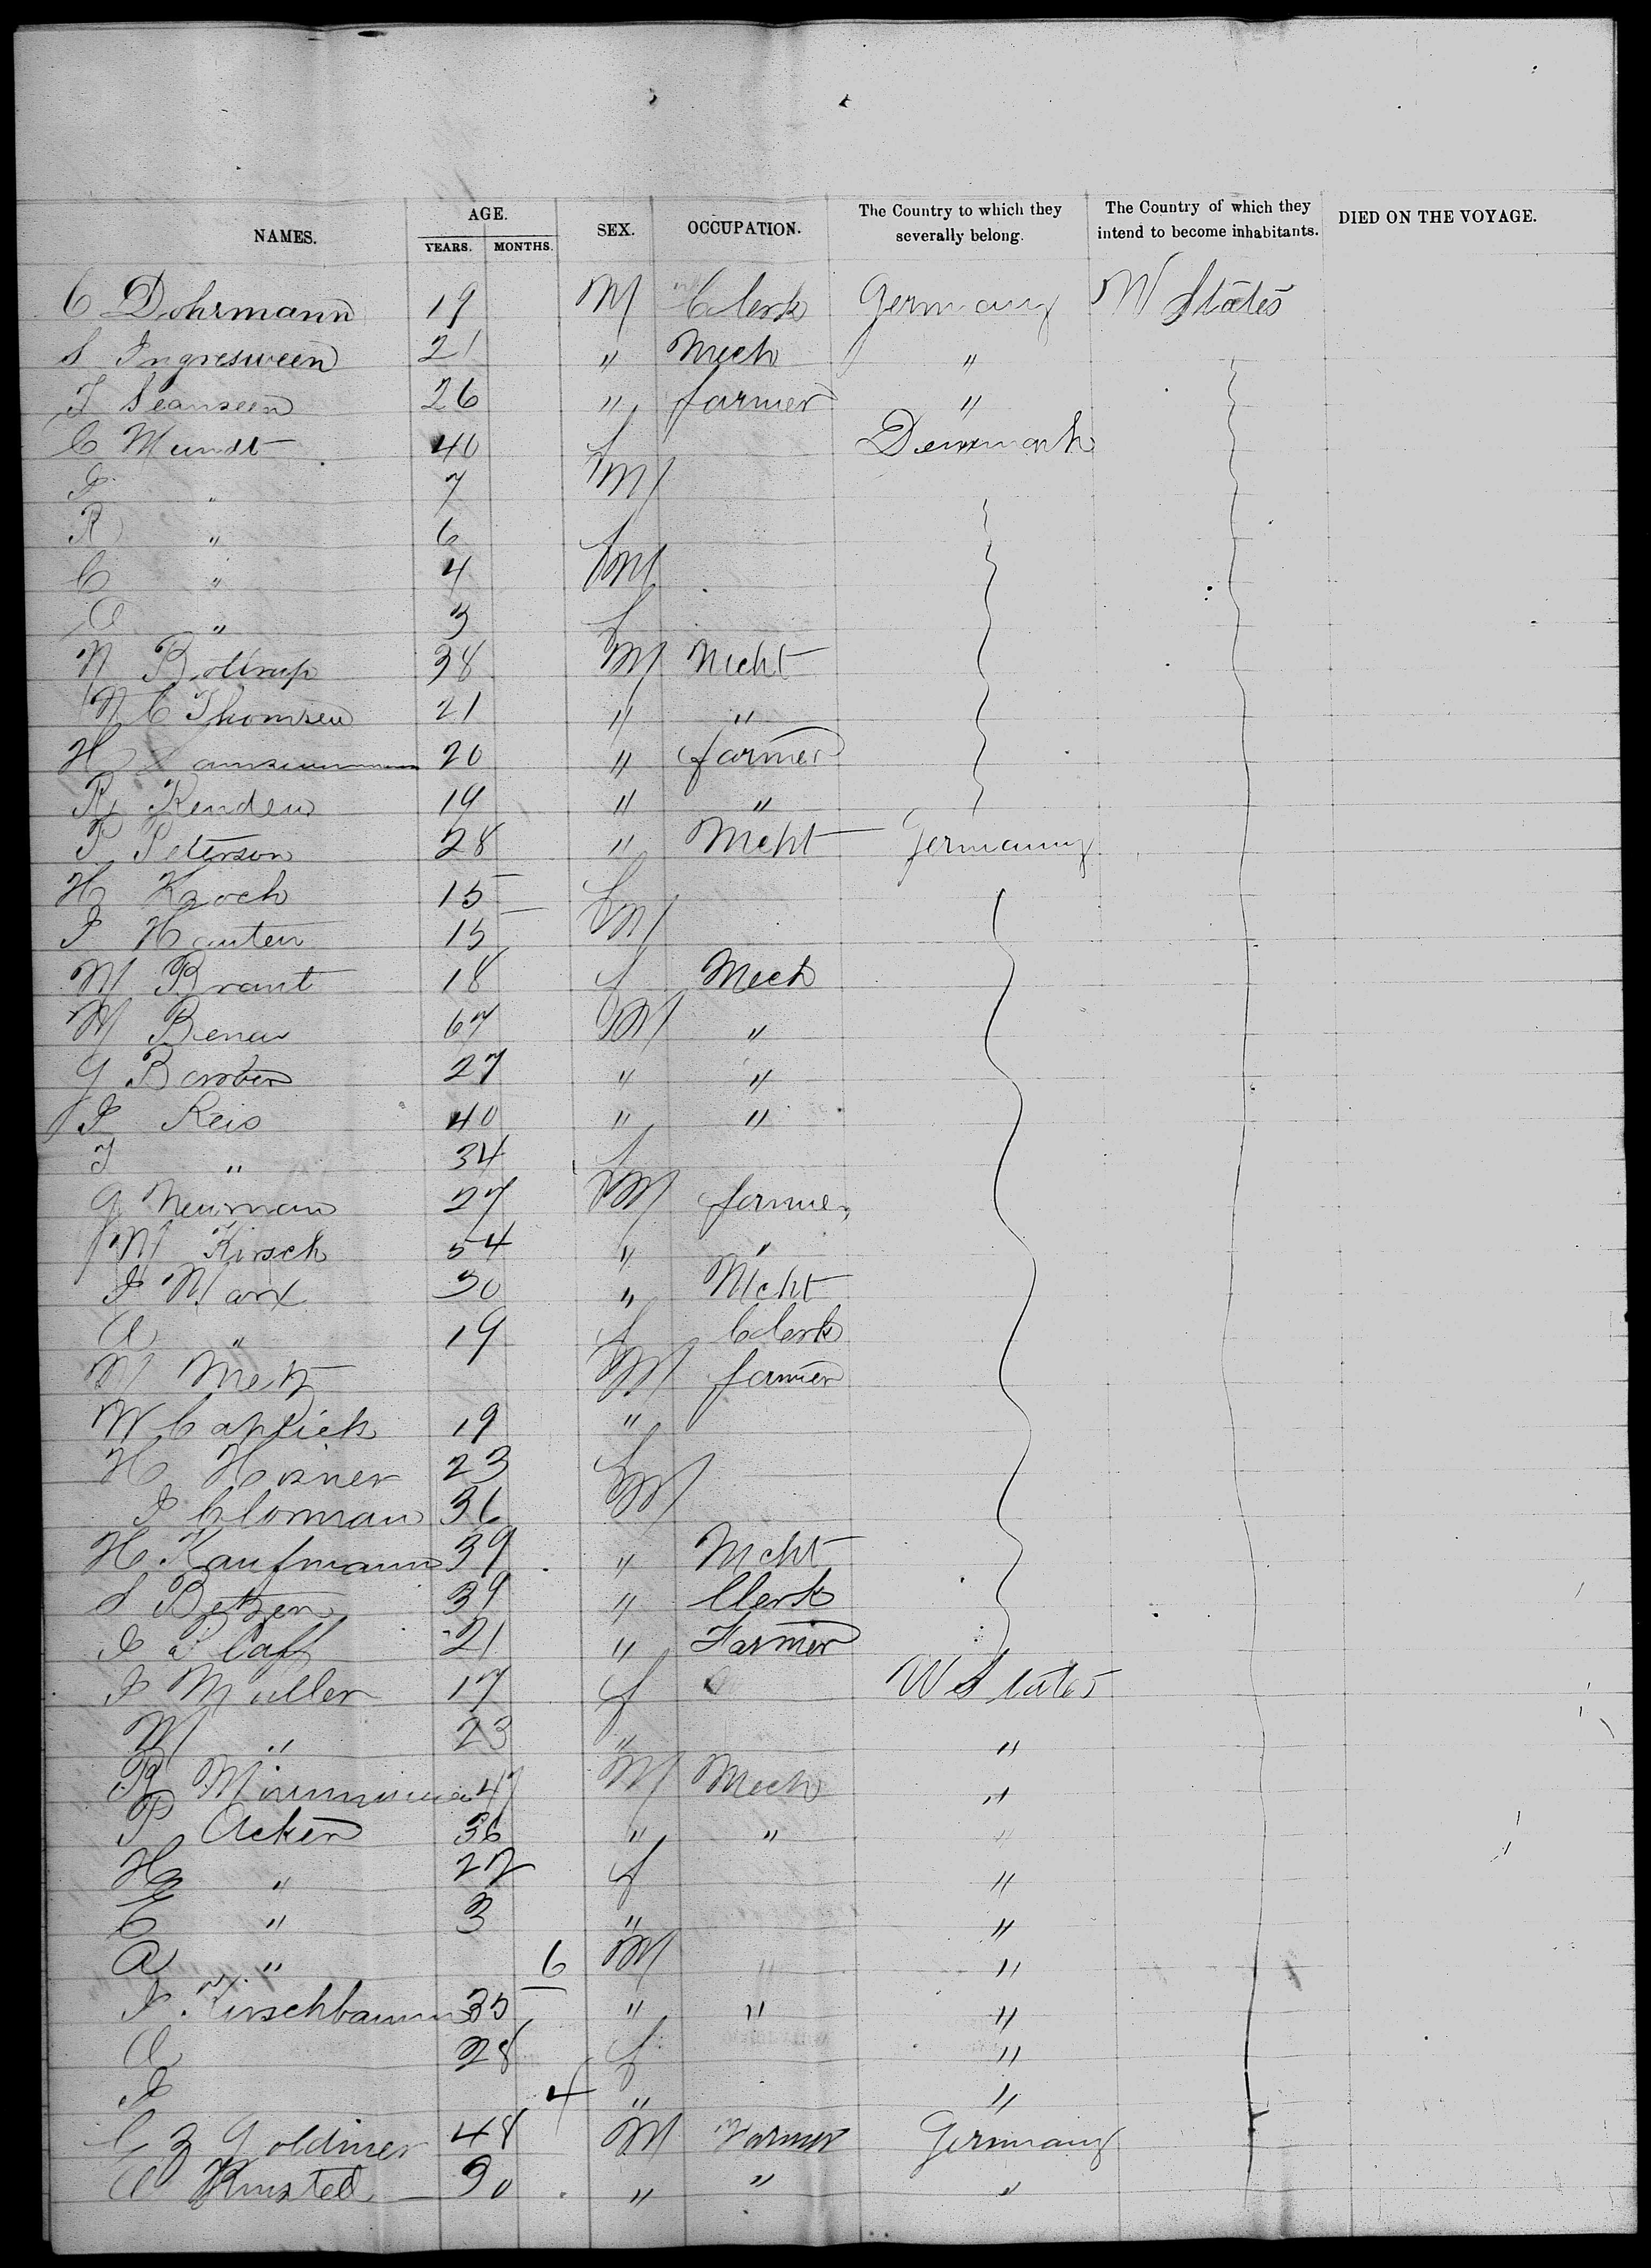 NAMES. AGE. YEARS. MONTHS. SEX. OCCUPATION. The Country to which they severally belong. The Country of which they intend to become inhabitants. DIED ON THE VOYAGE.
C Dohrmann 19 M Clerk Germany U States
S Ingresween 21 " Mech "
J Seanseen 26 " farmer "
C Mundt 40 f Denmark
I " 7 M
R " 6 f
C " 4 M
A " 3 f
N Boltrup 38 M Mcht
N C Thomsen 21 " "
H 20 " farmer
R Renden 19 " "
P Peterson 28 " Mcht Germany
H Kroch 15 f
I Hauten 15 M
M Brant 18 f Mech
M Benau 67 M "
G Barber 27 " "
I Reis 40 " "
J " 34 f
G Neuman 27 M farmer
M Kirsch 54 " "
I Marx 30 " Mcht
A " 19 f Clerk
M Metz M farmer
W Caprich 19 "
H Hosner 23 f
I Cloman 36 M
H Kaufmann 39 " Mcht
S Betzen 39 " Clerk
I Plaff 21 " Farmer
I Muller 17 f U States
M " 23 " "
B 47 M Mech "
P Acker 36 " " "
H " 27 f "
E " 3 " "
A " 6 M " "
I Kirschbaum 35 " " "
A 28 f "
I 4 " "
C Z Goldmer 48 M Farmer Germany
A Kunsted 30 " " "